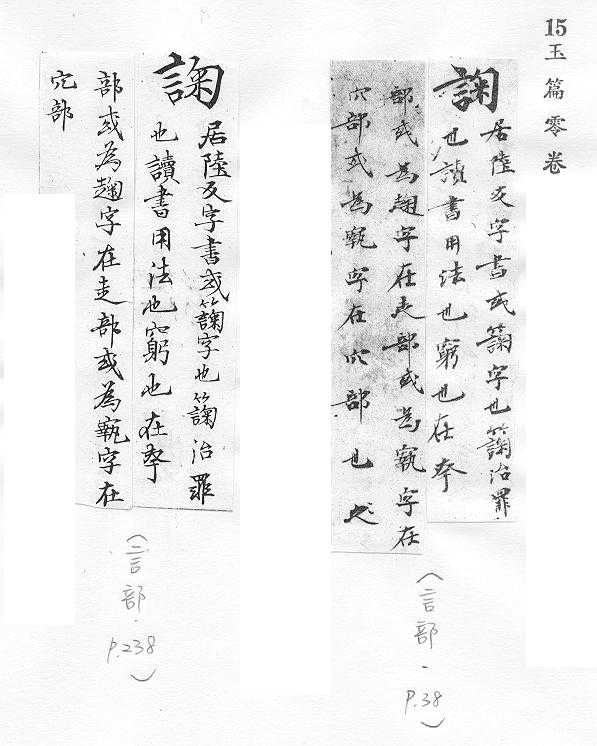 15玉篇零卷
諊
居陸反字書或䉤字也䉤治罪
也讀書用法也窮也在㚔
部或為趜字在走部或為竀字在
穴部或為竀字在穴部也
(言部.P.38)
諊
居陸反字書或䉤字也䉤治罪
也讀書用法也窮也在㚔
部或為趜字在走部或為竀字在
穴部
(言部.P.238)